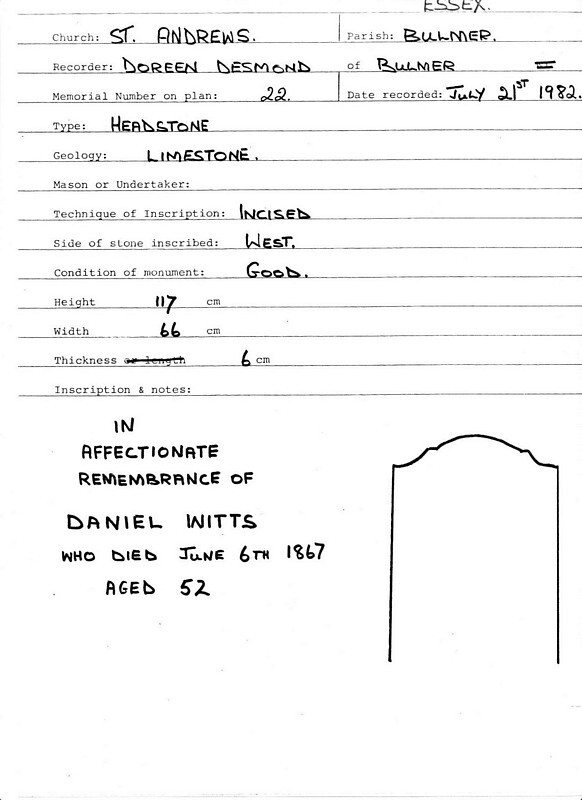 ESSEX.
Church: ST. ANDREWS. Parish: BULMER.
Recorder: DOREEN DESMOND of BULMER
Memorial Number on plan: 22. Date recorded: JULY 21ST 1982.
Type: HEADSTONE
Geology: LIMESTONE.
Mason or Undertaker:
Technique of Inscription: INCISED
Side of stone inscribed: WEST.
Condition of monument: GOOD.
Height 117 cm
Width 66 cm
Thickness or length 6 cm
Inscription & notes:
IN
AFFECTIONATE
REMEMBRANCE OF
DANIEL WITTS
WHO DIED JUNE 6TH 1867
AGED 52